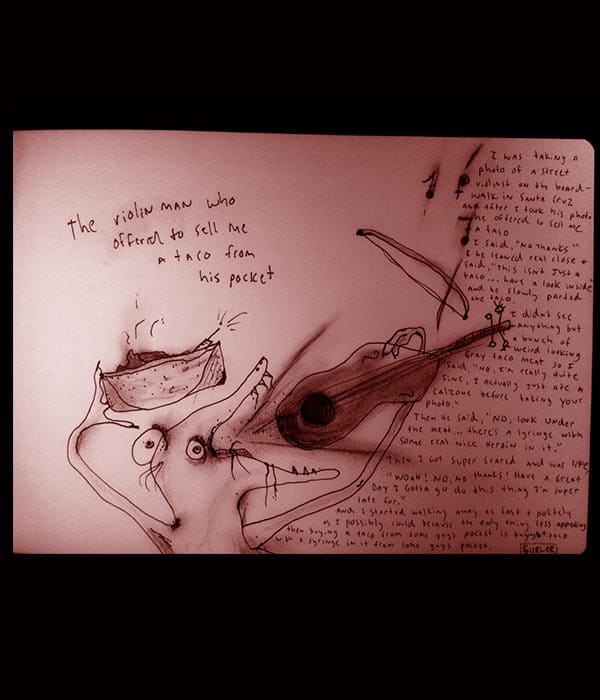 the violin man who
offered to sell me
a taco from
his pocket
I was taking a
photo of a street
violinst on the board-
walk in Santa Cruz
and after I took his photo
he offered to sell me
a taco
I said, "No thanks"
& he leaned real close &
said, "This isn't just a
taco... have a look inside"
and he slowly parted
the taco.
I didn't see
anything but
a bunch of
weird looking
gray taco meat so I
said, "No, I'm really quite
fine, I actually just ate a
calzone before taking your
photo."
Then he said, "NO, look under
the meat... there's a syringe with
some real nice heroin in it."
Then I got super scared and was like
"WOAH! NO, NO thanks! Have a great
Day I Gotta go do this thing I'm super
late for."
And I started walking away as fast & politely
as I possibly could because the only thing less appealing
then buying a taco from some guys pocket is buying a taco
with a syringe in it from some guys pocket.
GUBLER